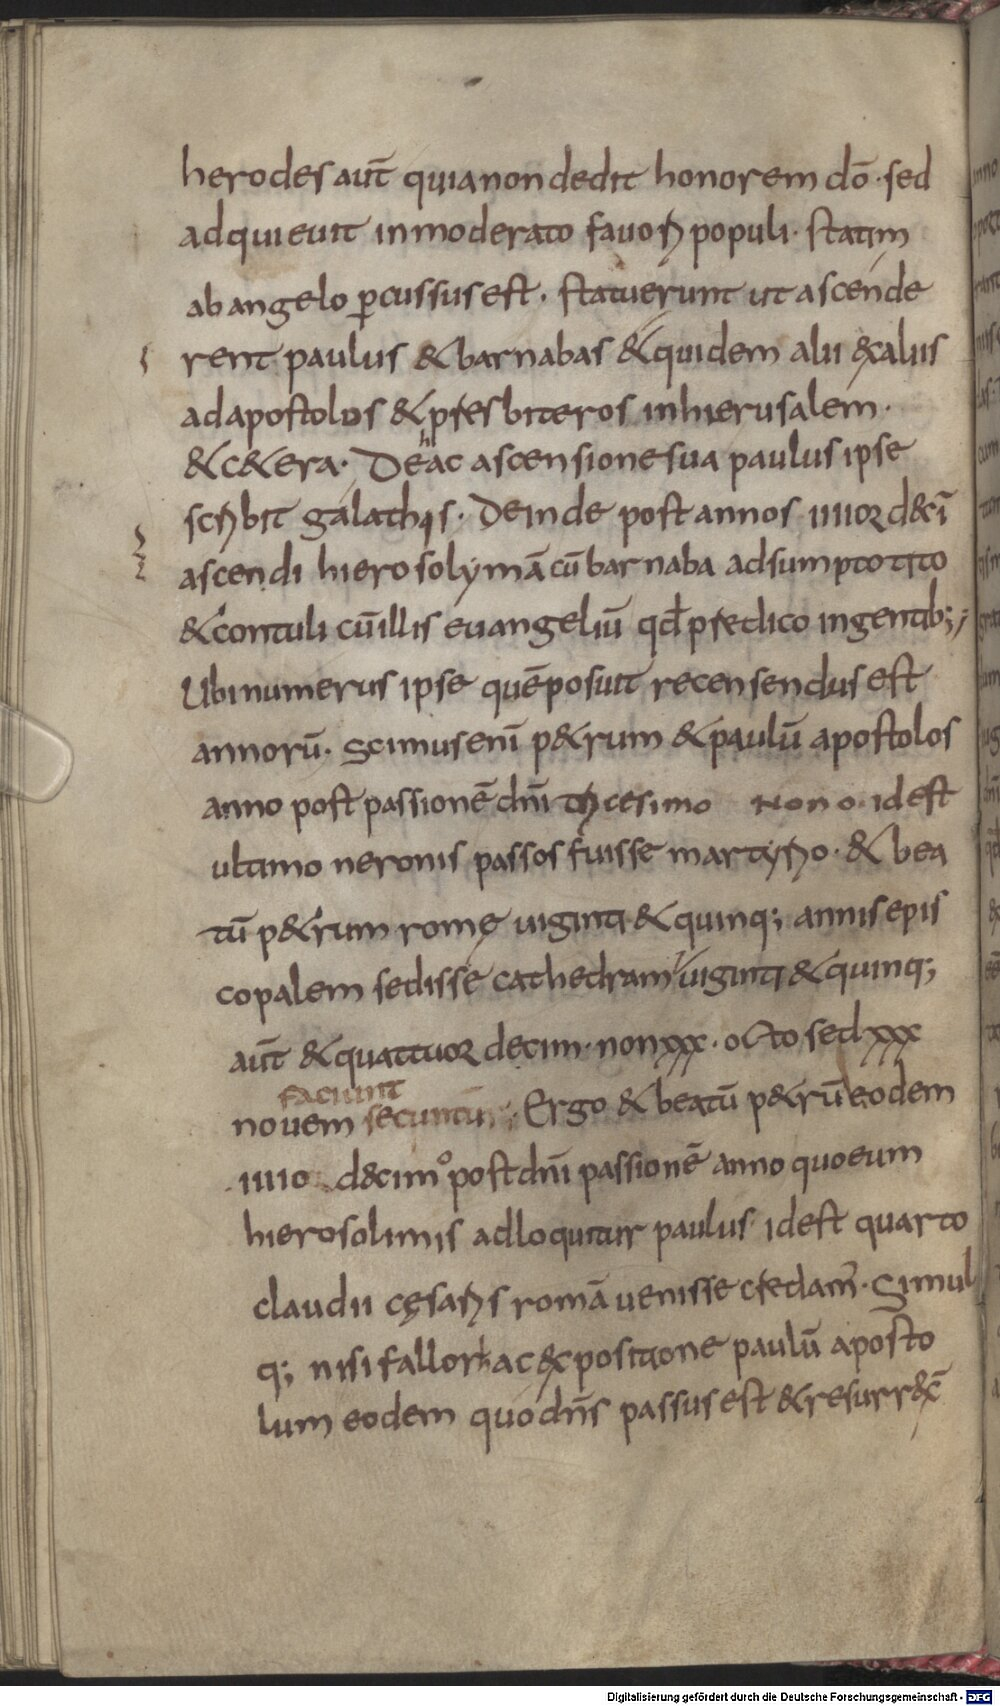 herodes aut̄ quia non dedit honorem dō · sed
adquieuit inmoderato fauori populi · statim
ab angelo ꝑcussus est · statuerunt ut ascende
rent paulus & barnabas & quidem alii &alus
ad apostolos & presbiteros in hierusalem ·
& c&era · De hac ascensione sua paulus ipse
scribit galathis · Deinde post annos iiiior decī
ascendi hierosolymā cū barnaba adsumpto tito
& contuli cū illis euangeliū qđ predico in gentib;
Ubi numerus ipse quē posuit recensendus est
annorū · Scimus enī p&rum & paulū apostolos
anno post passionē dn̄i tricesimo nono · id est
ultimo neronis passos fuisse martyrio · & bea
tū p&rum romę uiginti & quinq; annis epis
copalem sedisse cathedram uiginti & quinq;
aut̄ & quattuor decim · non xxx · octo sed xxx
faciunt
nouem secuntur ; Ergo & beatū p&rū eodem
· iiiio decimo post dn̄i passionē anno quo eum
hierosolimis adloquitur paulus · id est quarto
claudii cęsaris romā uenisse credam̄ · Simul
q; nisi fallor hac expositione paulū aposto
lum eodem quo dn̄s passus est & resurr&̄
Digitalisierung gefördert durch die Deutsche Forschungsgemeinschaft - DFG